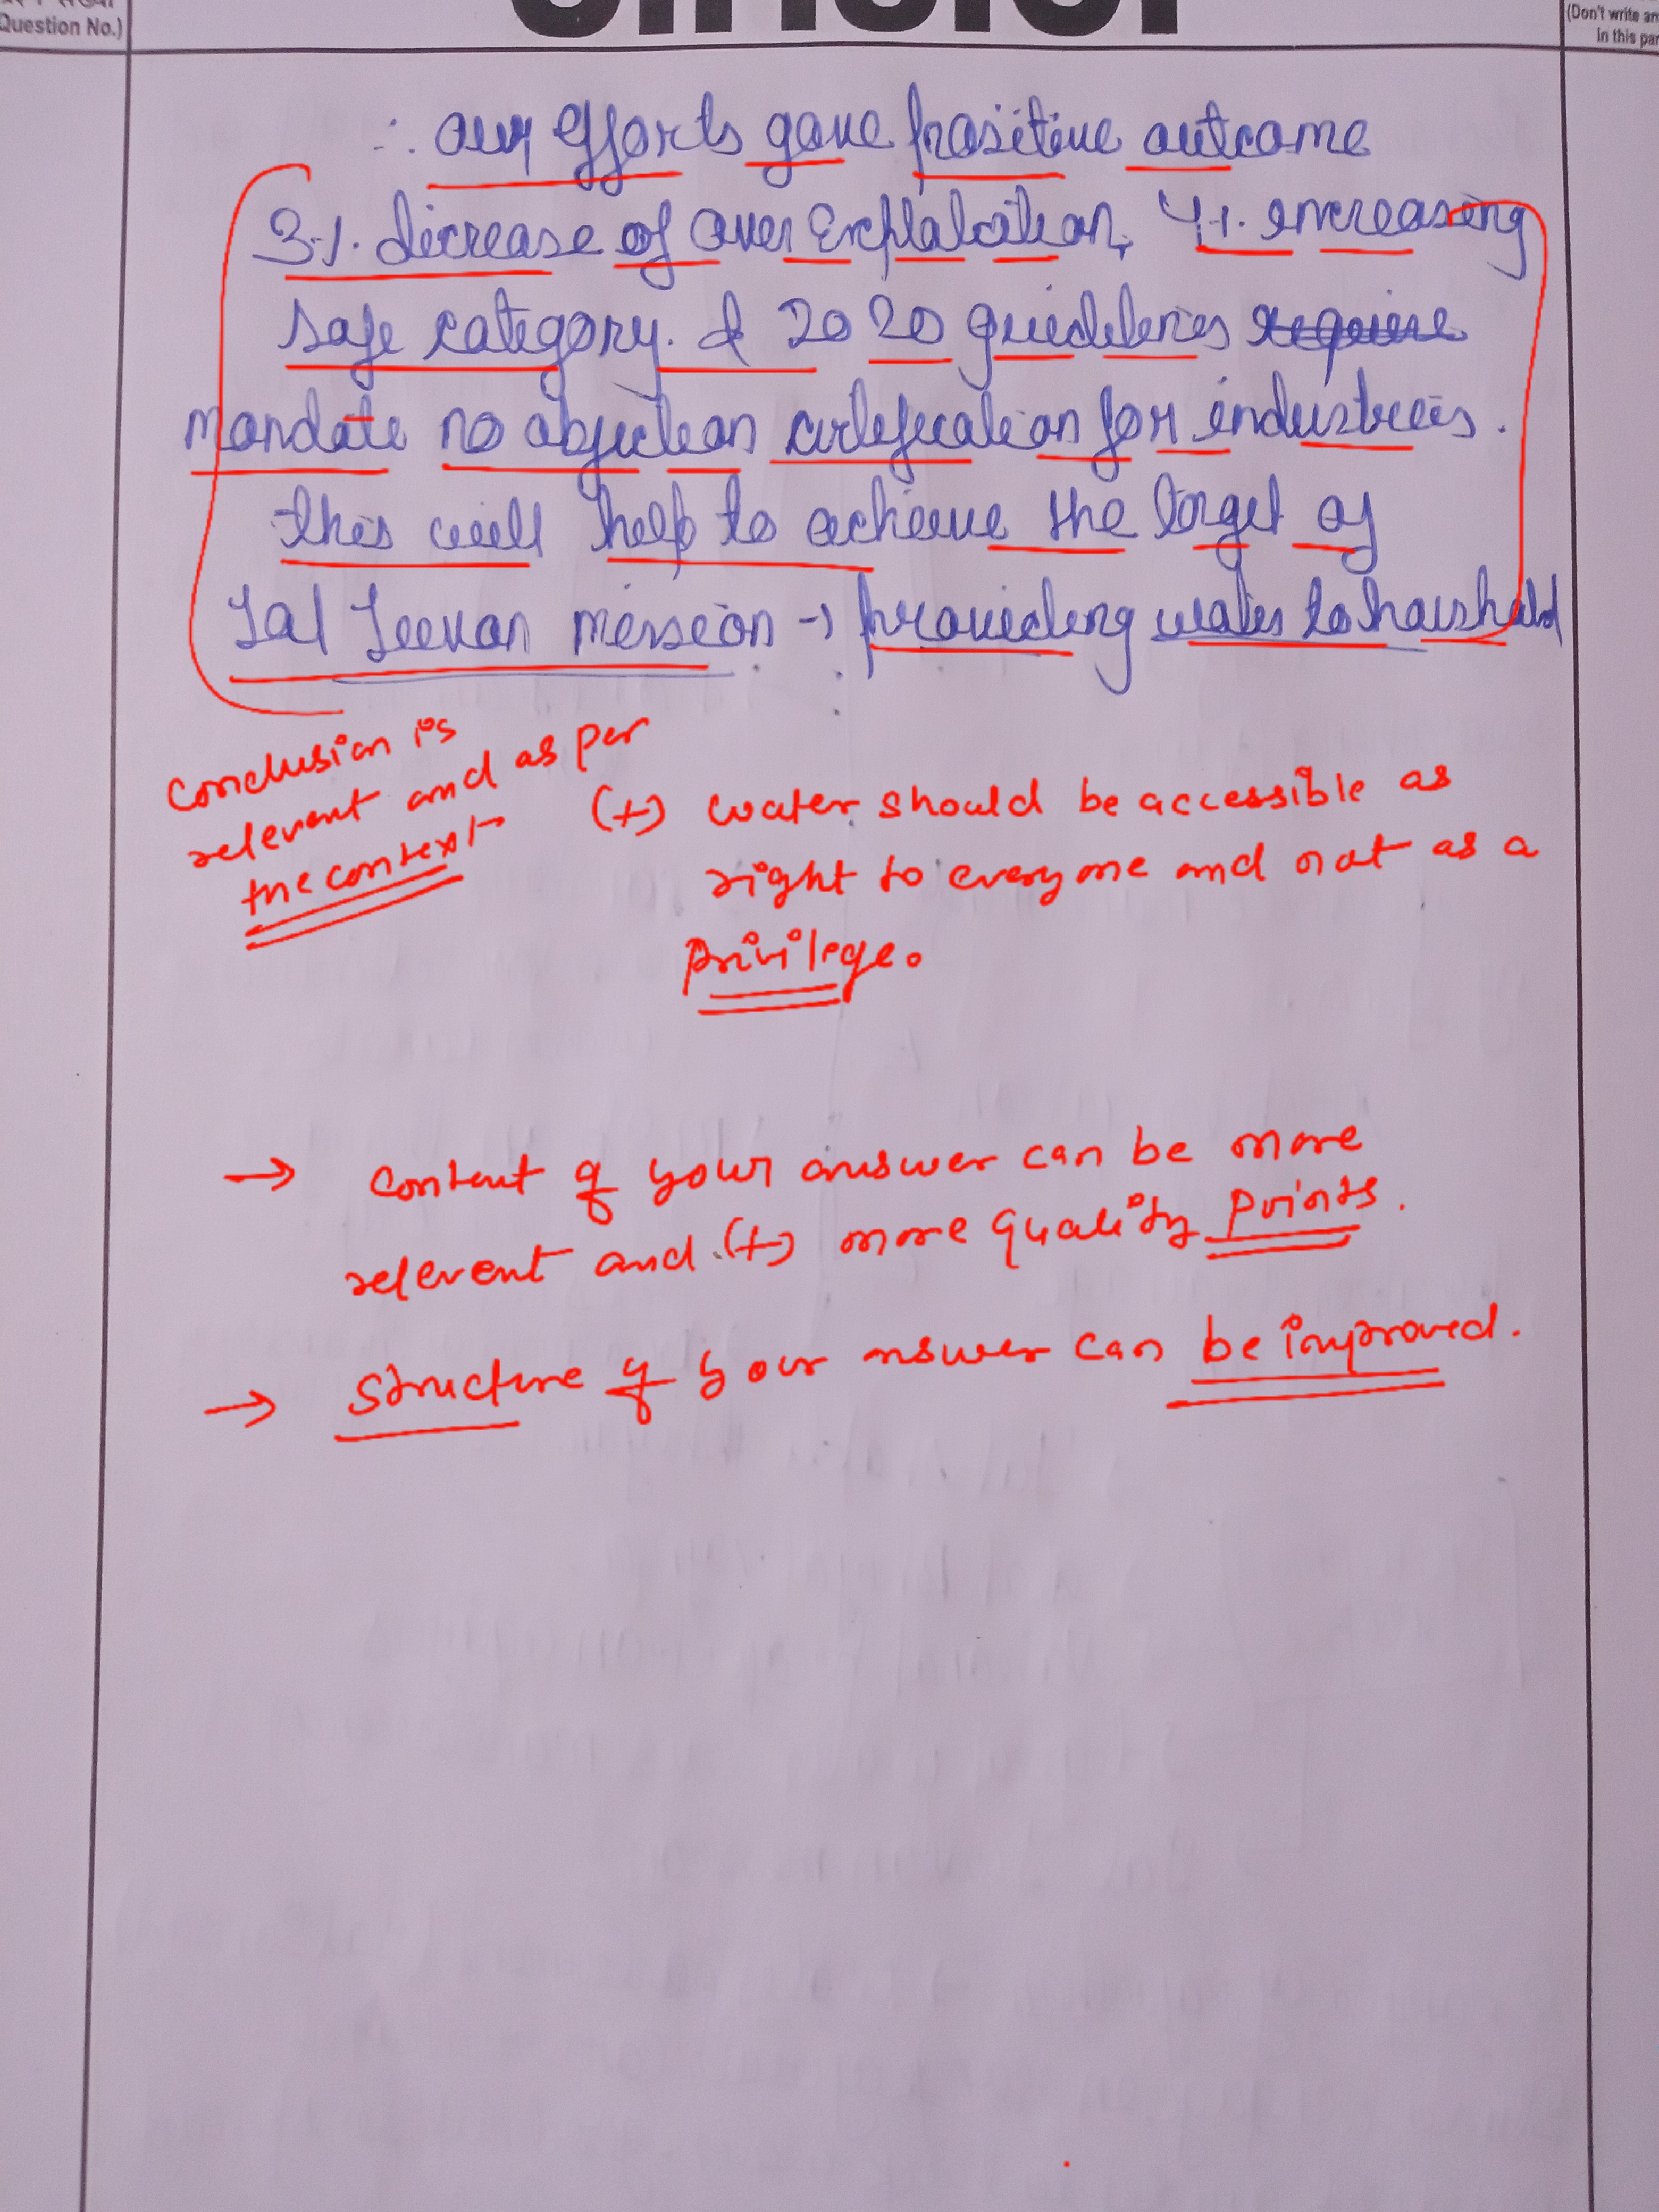 Question No.)
(Don't write an
in this par
∴ our efforts gave positive outcome
3%. decrease of over Exploitation, 4%. increasing
safe category. & 2020 guidelines require
mandate no objection certification for industries.
this will help to achieve the target of
Jal Jeevan mission → providing water to houshold
conclusion is
relevent and as per
the context
(+) water should be accessible as
right to everyone and not as a
privilege.
→ content of your answer can be more
relevent and (+) more quality points.
→ structure of your answer can be improved.